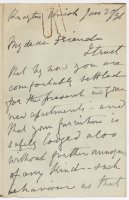 My dear Friends
I trust
that by now you are
comfortably settled
for the present in your
new apartments - and
that your furniture is
safely lodged also
without further annoyance
of any kind - such
behaviour as that